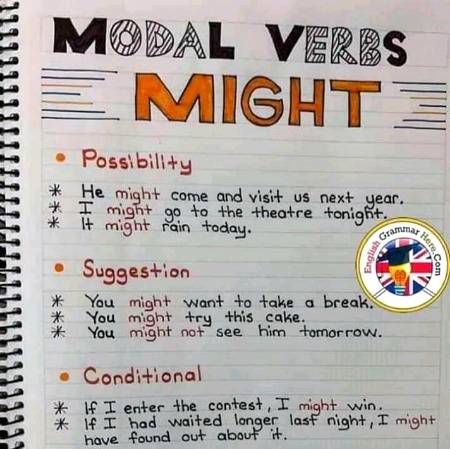 MODAL VERBS
MIGHT
• Possibility
* He might come and visit us next year.
* I might go to the theatre tonight.
* It might rain today.
English Grammar Here.Com
• Suggestion
* You might want to take a break.
* You might try this cake.
* You might not see him tomorrow.
• Conditional
* If I enter the contest, I might win.
* If I had waited longer last night, I might
have found out about it.